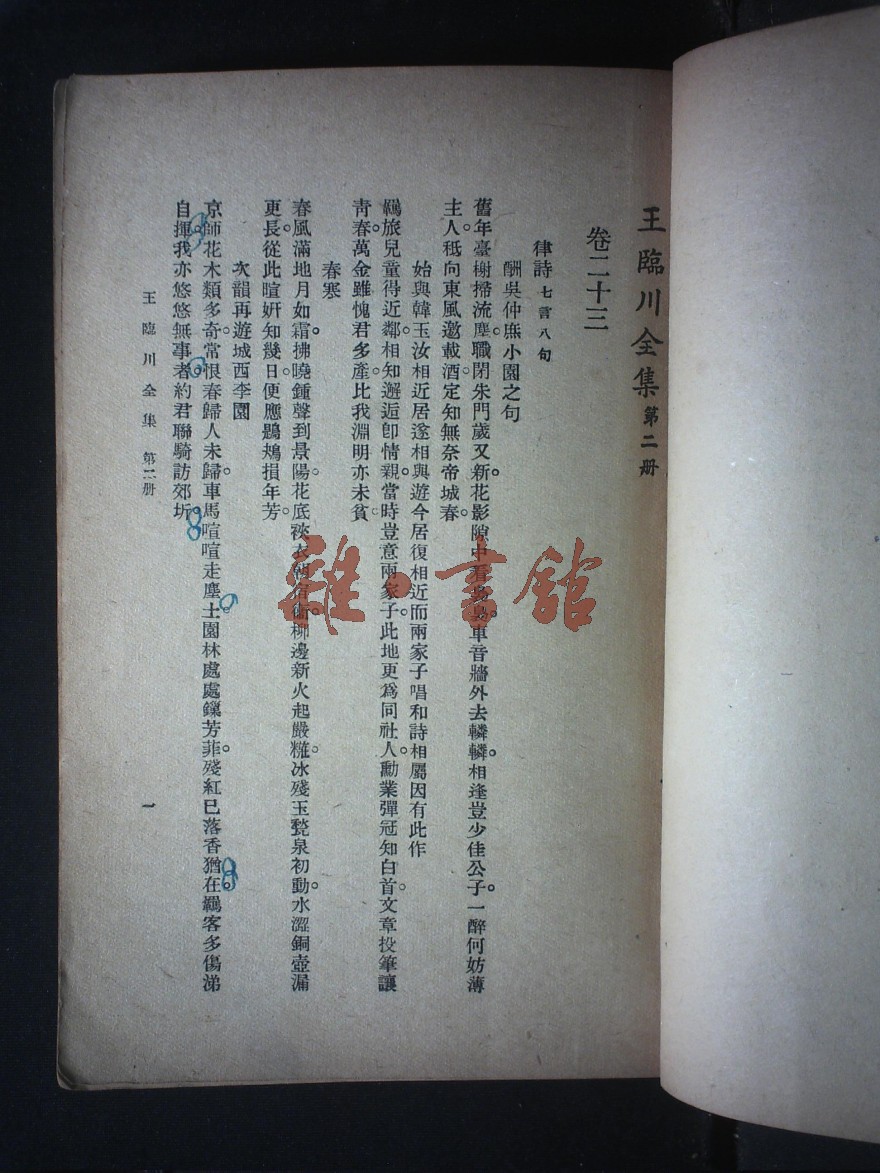 王臨川全集 第二册
卷二十三
律詩 七言八句
酬吳仲庶小園之句
舊年臺榭掃流塵。職閉朱門歲又新。花影隙中看。車音牆外去轔轔。相逢豈少佳公子。一醉何妨薄
主人。秪向東風邀載酒。定知無奈帝城春。
始與韓玉汝相近居遂相與遊今居復相近而兩家子唱和詩相屬因有此作
羈旅兒童得近鄰。相知邂逅卽情親。當時豈意兩家子。此地更爲同社人。勳業彈冠知白首。文章投筆讓
靑春。萬金雖愧君多產。比我淵明亦未貧。
春寒
春風滿地月如霜。拂曉鍾聲到景陽。花底裌衣朝宿衞。柳邊新火起嚴糚。冰殘玉甃泉初動。水澀銅壺漏
更長。從此暄姸知幾日。便應鶗鴂損年芳。
次韻再遊城西李園
京師花木類多奇。常恨春歸人未歸。車馬喧喧走塵土。園林處處鏁芳菲。殘紅已落香猶在。羈客多傷涕
自揮。我亦悠悠無事者。約君聯騎訪郊圻。
王臨川全集 第二册
一
雜·書館